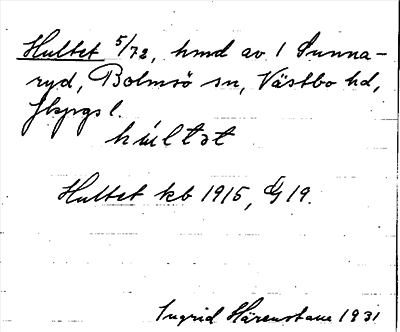 Hultet 5/72, hmd av 1 Sunna-
ryd, Bolmsö sn, Västbo hd,
Jkpgs l.
húltət
Hultet kb 1915, G 19.
Ingrid Härenstam 1931